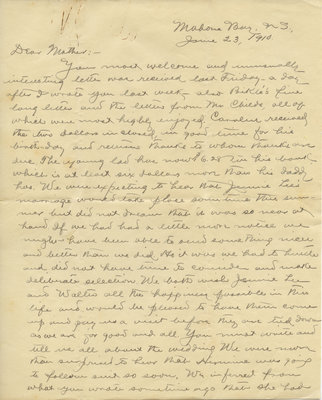 Mahone Bay, N.S.
June 23, 1910.
Dear Mother;-
Your most welcome and unusually
interesting letter was received last Friday - a day
after I wrote you last week - also Birkie's fine
long letter and the letters from Mr Childs all of
which were most highly enjoyed. Caroline received
the two dollars inclosed, in good time for his
birthday and returns thanks to whom thanks are
due. The young lad has now $6.28 in his bank -
which is at least six dollars more than his daddy
has. We were expecting to hear that Jennie Lee's
marriage would take place sometime this sum-
mer but did not dream that it was so near at
hand. If we had had a little more notice we
might have been able to send something nicer
and better than we did. As it was we had to hustle
and did not have time to consider and make
deliberate selection. We both wish Jennie Lee
and Walter all the happiness possible in this
life and would be pleased to have them come
up and pay us a visit before they are tied down
as we are for good and all. You must write and
tell us all about the wedding. We were more
than surprised to hear that Hermine was going
to follow suit so soon. We inferred from
what you wrote sometime ago that she had